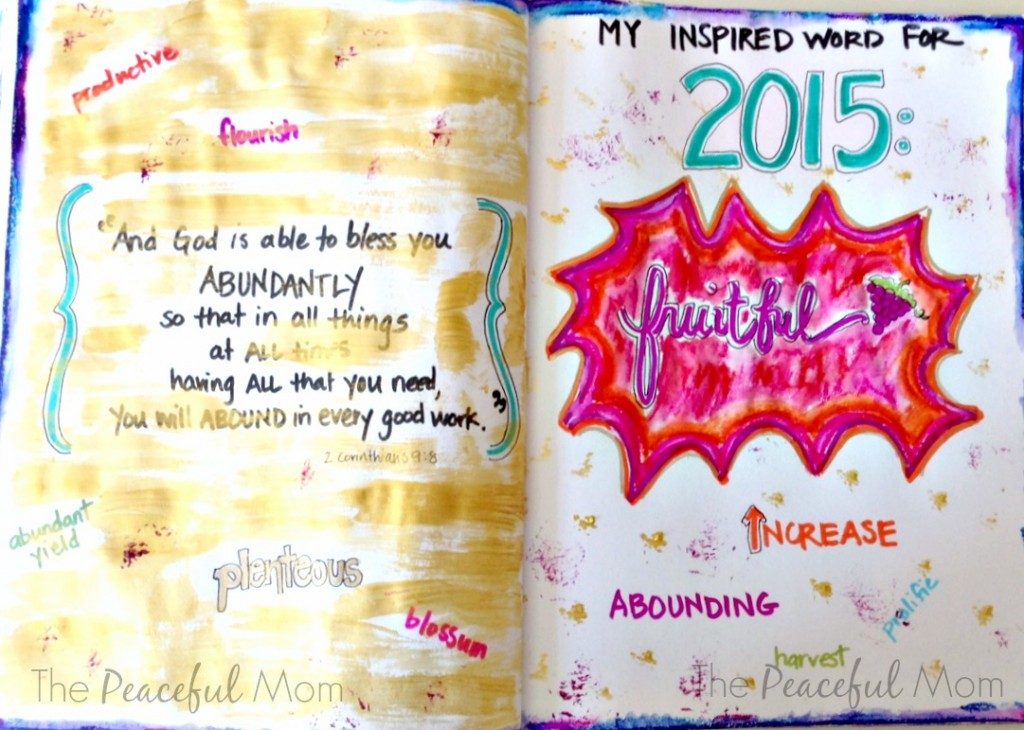 productive
flourish
"And God is able to bless you
ABUNDANTLY
so that in all things
at ALL times
having ALL that you need,
you will ABOUND in every good work."
2 corinthians 9:8
abundant
yield
plenteous
blossum
The Peaceful Mom
MY INSPIRED WORD FOR
2015:
fruitful
INCREASE
ABOUNDING
prolific
harvest
The Peaceful Mom